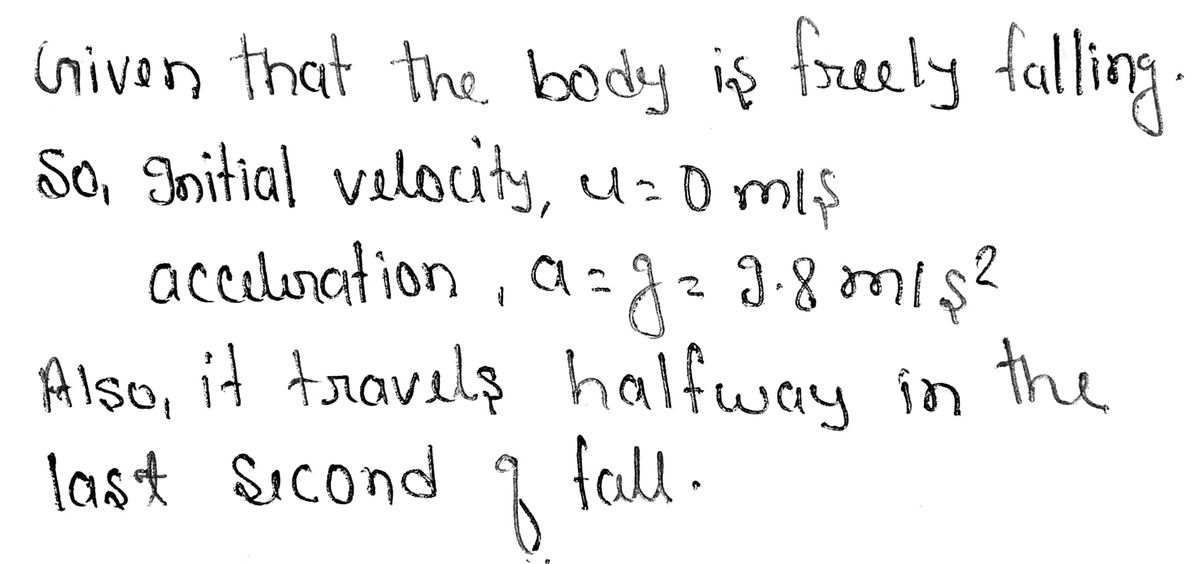 Given that the body is freely falling.
So, Initial velocity, u = 0 m/s
acceleration, a = g = 9.8 m/s²
Also, it travels halfway in the
last second of fall.